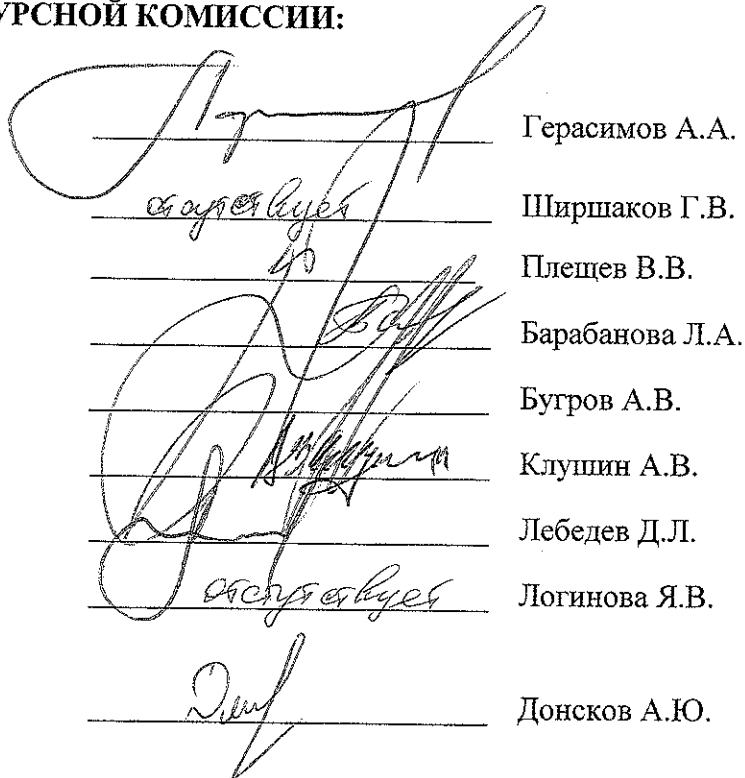 УРСНОЙ КОМИССИИ:
Герасимов А.А.
отсутствует Ширшаков Г.В.
Плещев В.В.
Барабанова Л.А.
Бугров А.В.
Клушин А.В.
Лебедев Д.Л.
отсутствует Логинова Я.В.
Донсков А.Ю.